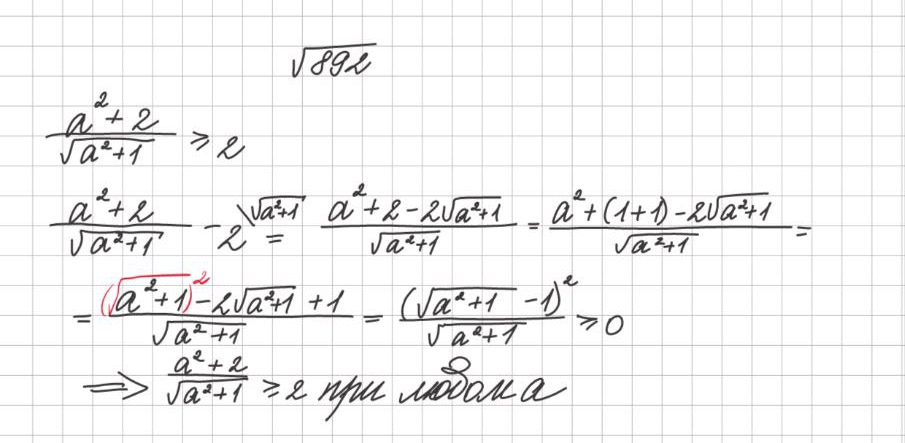 √892
(a²+2)/√(a²+1) ⩾ 2
(a²+2)/√(a²+1) - 2\^√(a²+1) = (a²+2-2√(a²+1))/√(a²+1) = (a²+(1+1)-2√(a²+1))/√(a²+1) =
= ((√(a²+1))²-2√(a²+1)+1)/√(a²+1) = (√(a²+1) -1)²/√(a²+1) ⩾ 0
⟹ (a²+2)/√(a²+1) ⩾ 2 при любом а